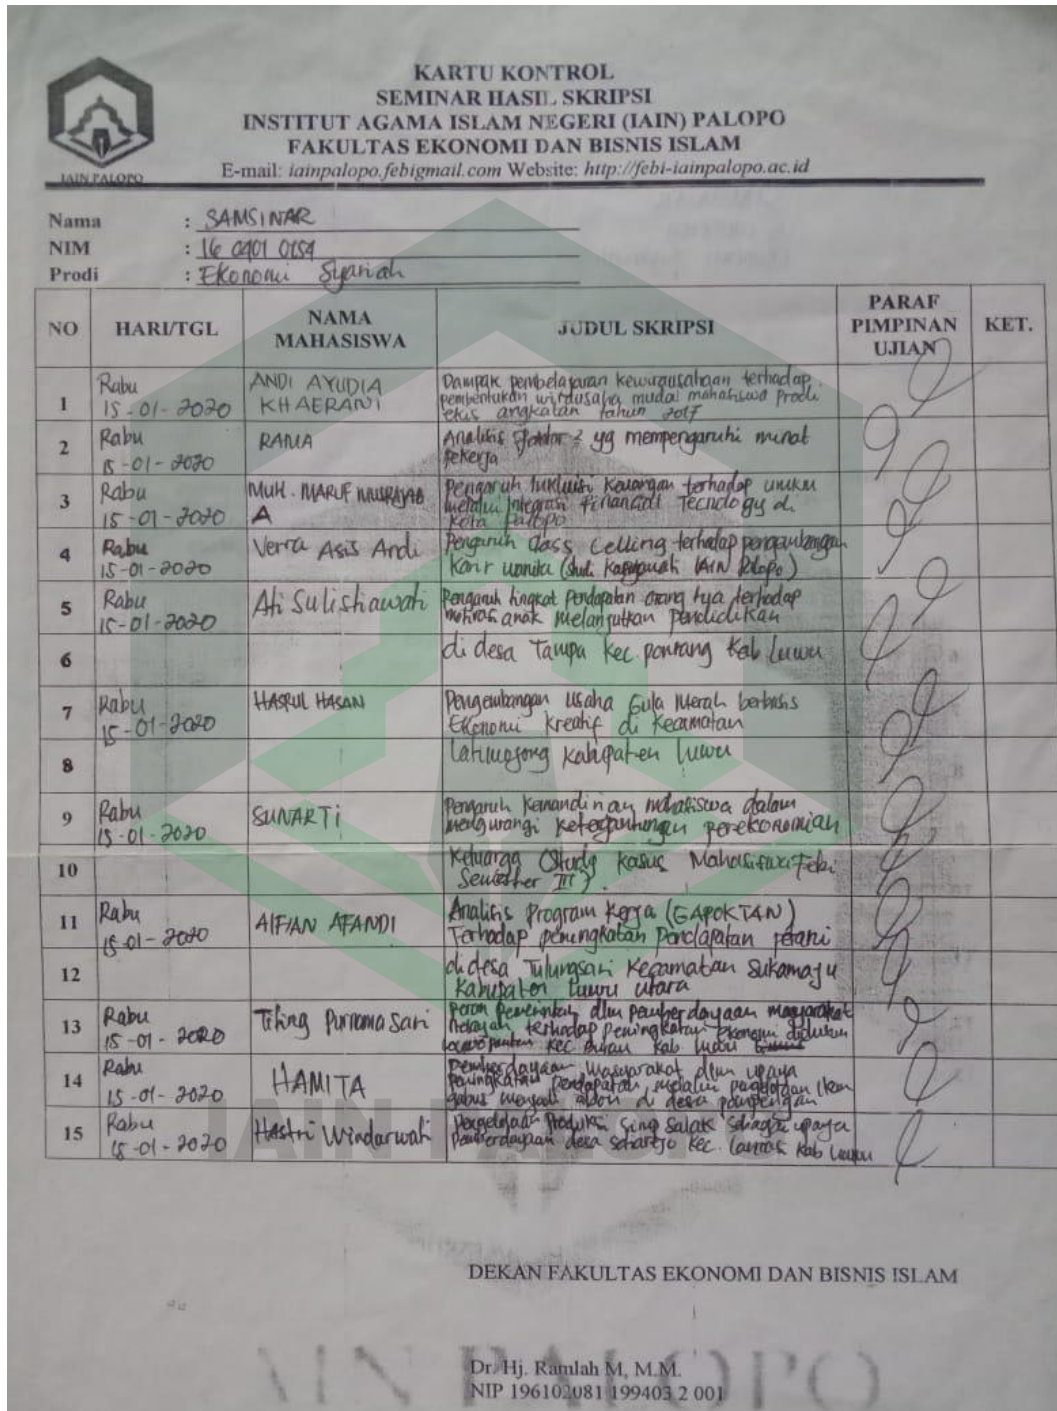 KARTU KONTROL
SEMINAR HASIL SKRIPSI
INSTITUT AGAMA ISLAM NEGERI (IAIN) PALOPO
FAKULTAS EKONOMI DAN BISNIS ISLAM
E-mail: iainpalopo.febigmail.com Website: http://febi-iainpalopo.ac.id
IAIN PALOPO
Nama : SAMSINAR
NIM : 16 0401 0159
Prodi : Ekonomi Syariah
NO HARI/TGL NAMA MAHASISWA JUDUL SKRIPSI PARAF PIMPINAN UJIAN KET.
1 Rabu 15-01-2020 ANDI AYUDIA KHAERANI Dampak pembelajaran kewirausahaan terhadap
pembentukan wirausaha muda mahasiswa prodi
ekis angkatan tahun 2017
2 Rabu 15-01-2020 RAMA Analisis faktor2 yg mempengaruhi minat
Pekerja
3 Rabu 15-01-2020 MUH. MARUF A Pengaruh Inklusi Keuangan terhadap umkm
melalui Integrasi Financial Tecnology di
Kota Palopo
4 Rabu 15-01-2020 Verra Asis Andi Pengaruh Glass Celling terhadap pengembangan
karir wanita (studi IAIN Palopo)
5 Rabu 15-01-2020 Ati Sulistiawati Pengaruh tingkat Pendapatan orang tua terhadap
anak melanjutkan Pendidikan
6 di desa Tampa kec. ponrang Kab Luwu
7 Rabu 15-01-2020 HASRUL HASAN Pengembangan Usaha Gula Merah berbasis
Ekonomi Kreatif di Kecamatan
8 Latimojong Kabupaten Luwu
9 Rabu 15-01-2020 SUNARTI Pengaruh Kemandirian mahasiswa dalam
mengurangi ketergantungan perekonomian
10 Keluarga (Study Kasus Mahasiswa Febi
Semester III).
11 Rabu 15-01-2020 AlFIAN AFANDI Analisis Program Kerja (GAPOKTAN)
Terhadap peningkatan Pendapatan petani
12 di desa Tulungsari Kecamatan Sukamaju
Kabupaten Luwu utara
13 Rabu 15-01-2020 Titing Purnama Sari Peran Pemerintah dlm pemberdayaan masyarakat
Nelayan terhadap peningkatan ekonomi
kec. kab luwu
14 Rabu 15-01-2020 HAMITA Pemberdayaan Masyarakat dlm upaya
peningkatan pendapatan melalui ikan
gabus menjadi abon di desa
15 Rabu 15-01-2020 Hastri Windarwati Pengelolaan Produksi Sirup Salak sebagai upaya
Pemberdayaan desa kec. kab Luwu
IAIN PALOPO
DEKAN FAKULTAS EKONOMI DAN BISNIS ISLAM
Dr. Hj. Ramlah M, M.M.
NIP 196102081 199403 2 001
IAIN PALOPO